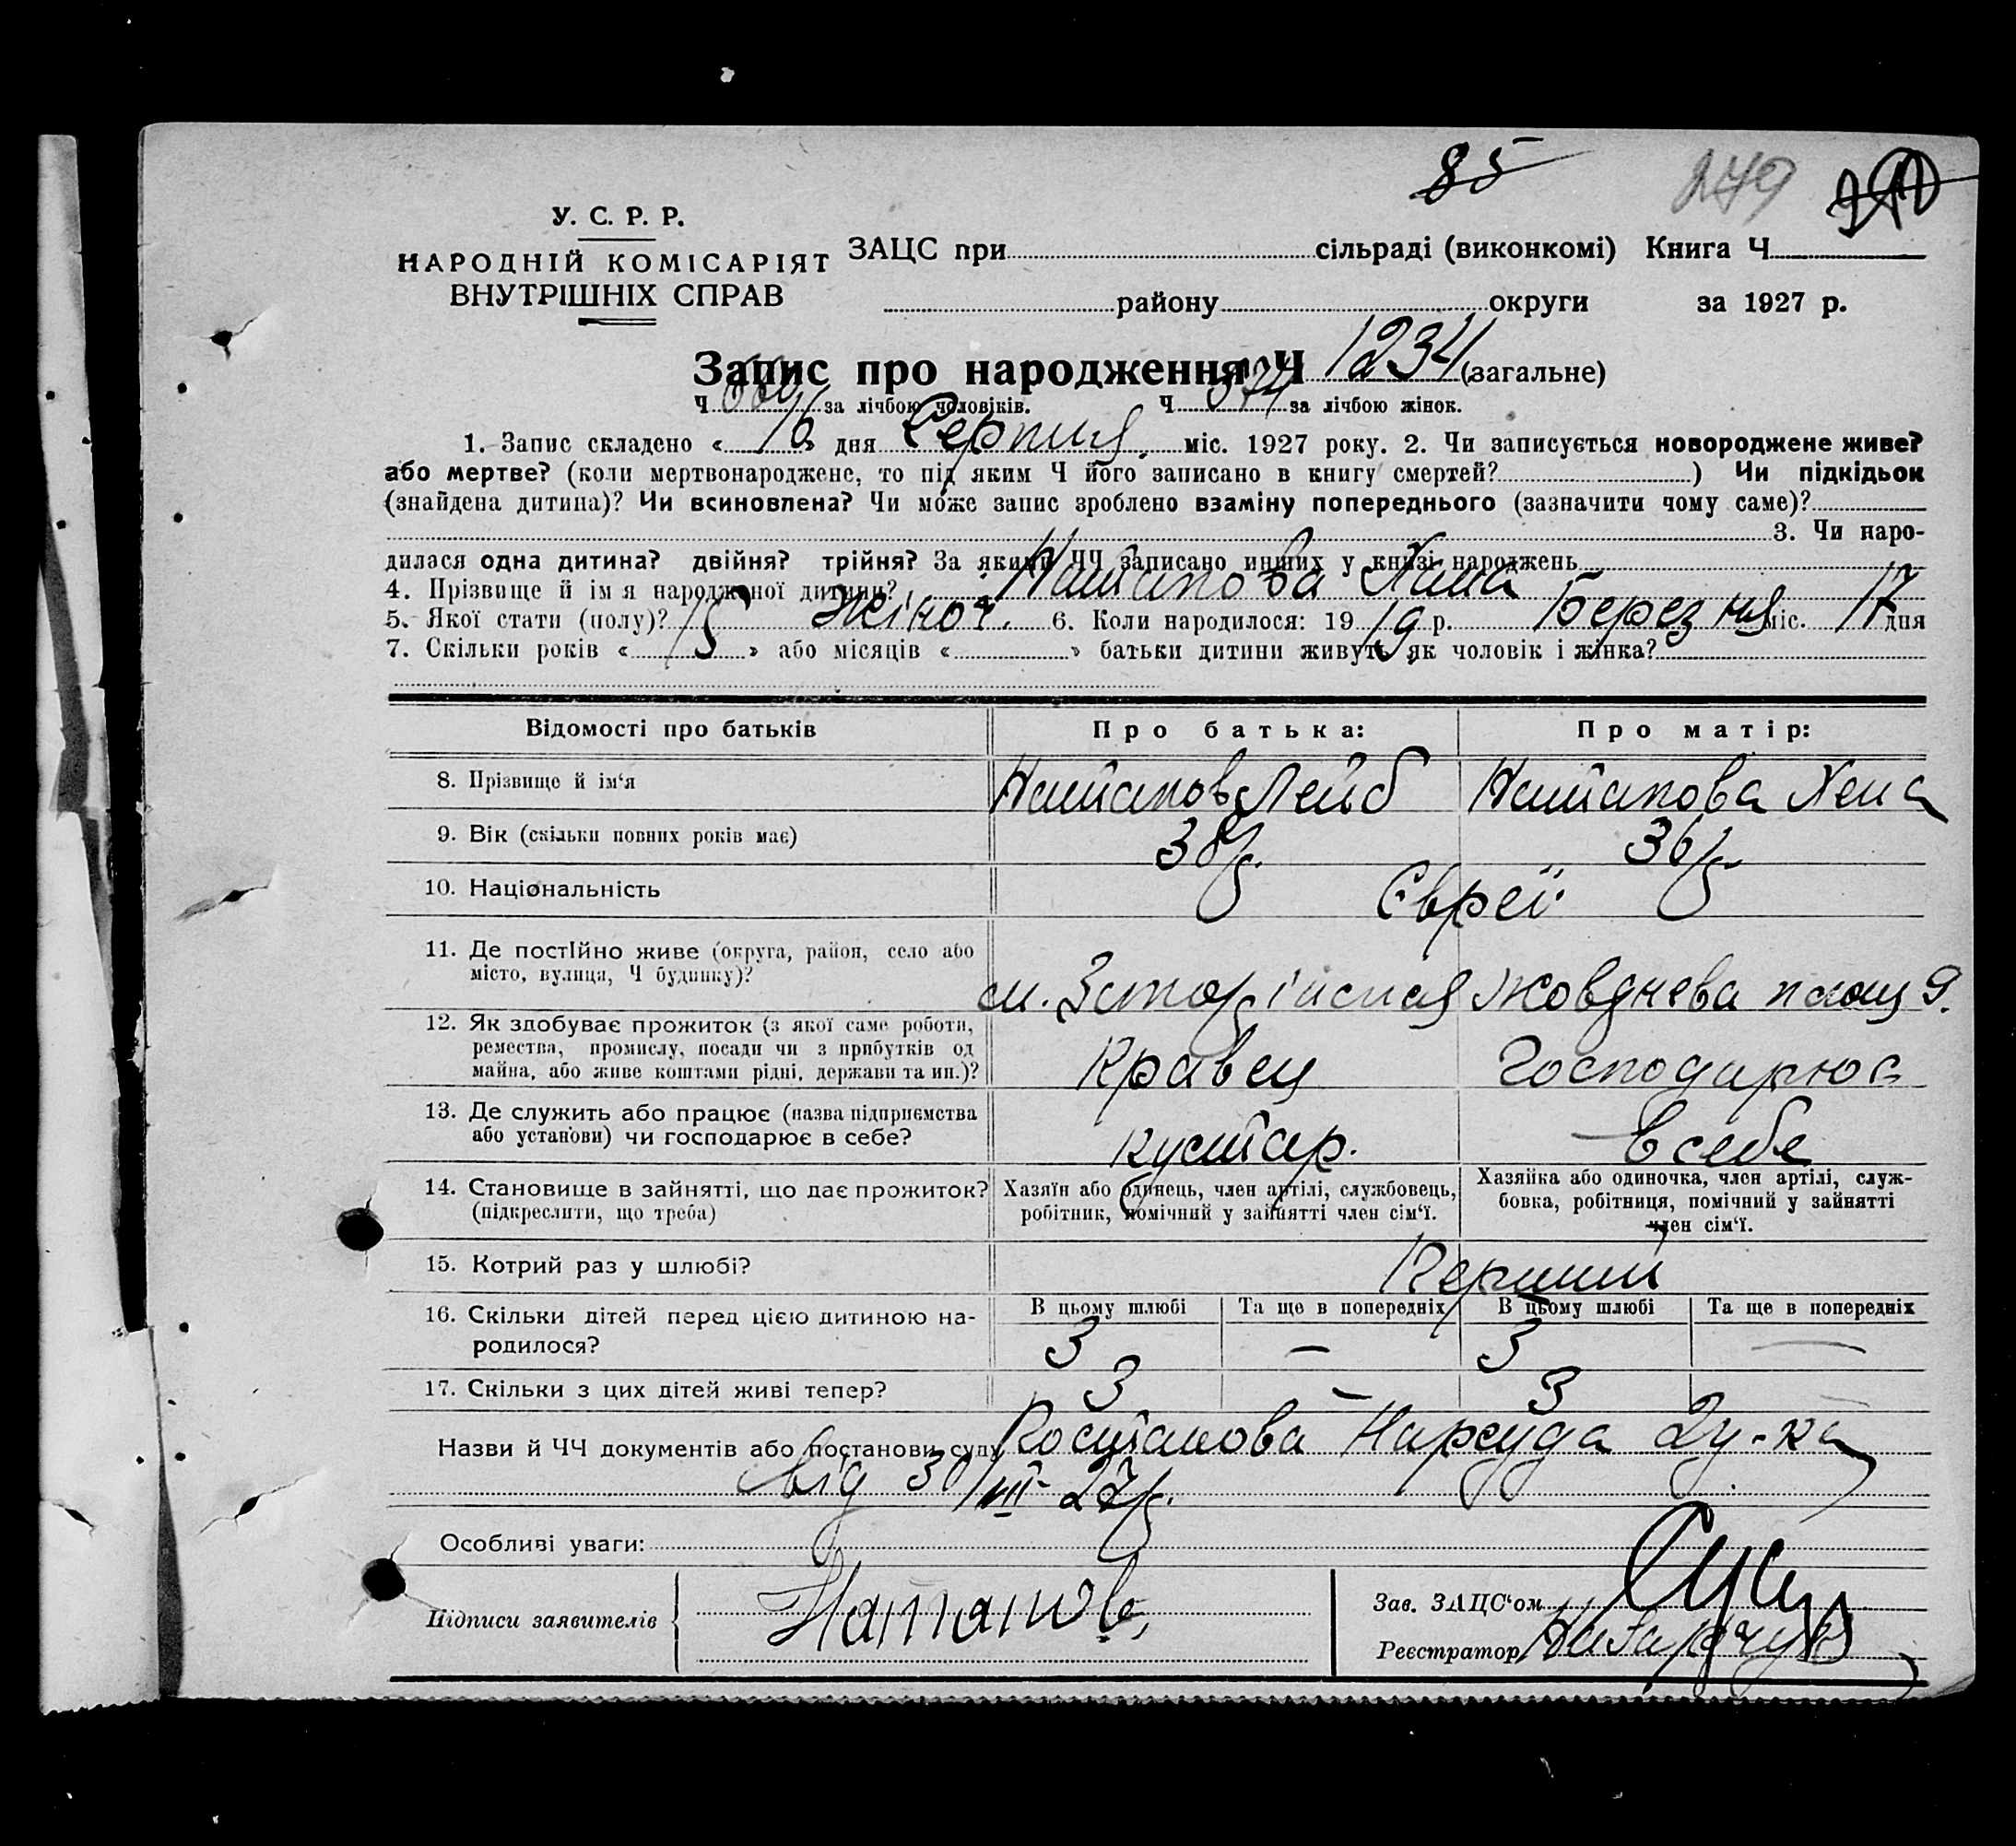 85
279
У. С. Р. Р.
НАРОДНІЙ КОМІСАРІЯТ
ВНУТРІШНІХ СПРАВ
ЗАЦС при сільраді (виконкомі) Книга Ч
району округи за 1927 р.
Запис про народження Ч 1234 (загальне)
Ч за лічбою чоловіків. Ч 574 за лічбою жінок.
1. Запис складено « 16 » дня Серпня міс. 1927 року. 2. Чи записується новороджене живе?
або мертве? (коли мертвонароджене, то під яким Ч його записано в книгу смертей? ) Чи підкідьок
(знайдена дитина)? Чи всиновлена? Чи може запис зроблено взаміну попереднього (зазначити чому саме)?
3. Чи наро-
дилася одна дитина? двійня? трійня? За якими ЧЧ записано инших у книзі народжень
4. Прізвище й ім'я народженої дитини? Натапова Хана
5. Якої стати (полу)? жіноч. 6. Коли народилося: 19 19 р. Березня міс. 17 дня
7. Скільки років « 15 » або місяців « » батьки дитини живуть як чоловік і жінка?
Відомості про батьків Про батька: Про матір:
8. Прізвище й ім'я Натапов Лейб Натапова Хена
9. Вік (скільки повних років має) 38 р. 36 р.
10. Національність Єврєї
11. Де постійно живе (округа, район, село або
місто, вулиця, Ч будинку)? м. Жовднева площ 9.
12. Як здобуває прожиток (з якої саме роботи,
ремества, промислу, посади чи з прибутків од
майна, або живе коштами рідні, держави та ин.)? Кравец Господарює
13. Де служить або працює (назва підприємства
або установи) чи господарює в себе? кустар. в себе
14. Становище в зайнятті, що дає прожиток?
(підкреслити, що треба)
Хазяїн або одинець, член артілі, службовець,
робітник, помічний у зайнятті член сім'ї.
Хазяйка або одиночка, член артілі, служ-
бовка, робітниця, помічний у зайнятті
член сім'ї.
15. Котрий раз у шлюбі? Перший
16. Скільки дітей перед цією дитиною на-
родилося?
В цьому шлюбі Та ще в попередніх В цьому шлюбі Та ще в попередніх
3 — 3 —
17. Скільки з цих дітей живі тепер? 3 — 3 —
Назви й ЧЧ документів або постанови суду Постанова Нарсуда 2 у-ка
від 30/VII-27 р.
Особливі уваги:
Підписи заявителів Натапов
Зав. ЗАЦС'ом
Реєстратор Назарчук